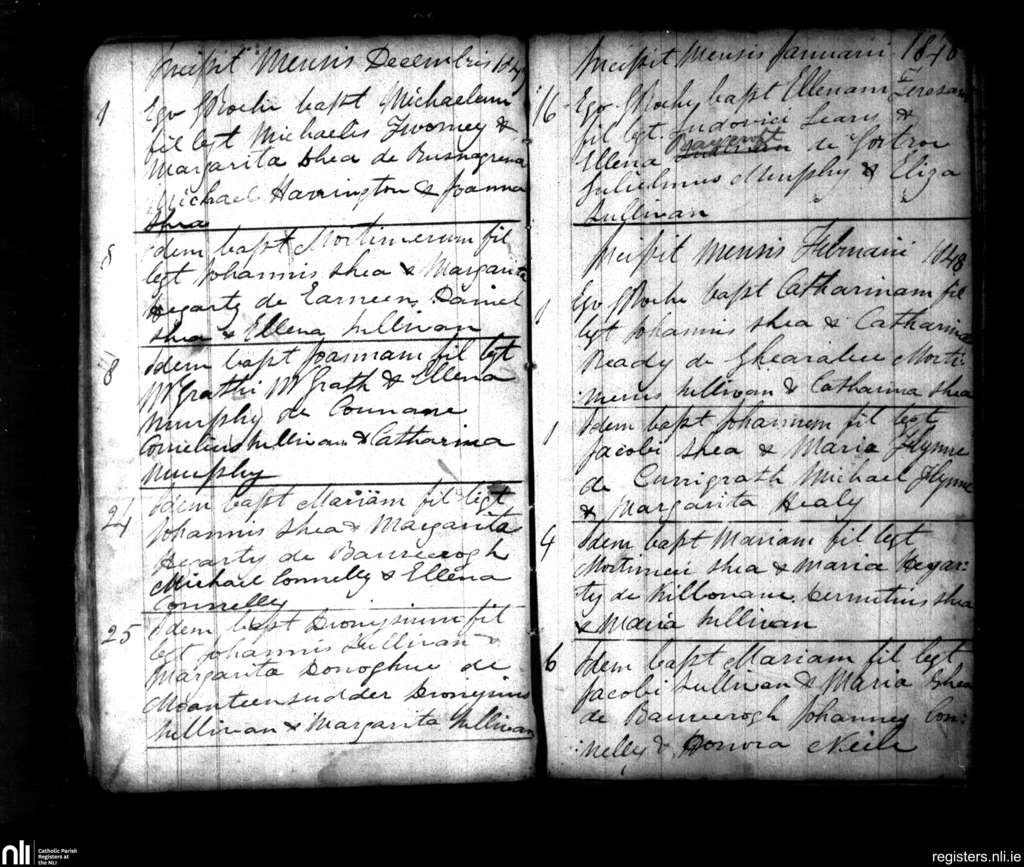 Incipit Mensis Decembris 1847
1 Ego Roche bapt Michaelem
fil legt Michaelis Twomey &
Margarita Shea de Rusnagrena
Michael Harrington & Joanna
Shea
5 Idem bapt Mortimerum fil
legt Johannis Shea & Margarita
Hegarty de Earneen Daniel
Shea & Ellena Sullivan
8 Idem bapt Joannam fil legt
McGrath & Ellena
Murphy de Counane
Cornelius Sullivan & Catharina
Murphy
24 Idem bapt Mariam fil legt
Johannis Shea & Margarita
Hegarty de Baurecrogh
Michael Connelly & Ellena
Connelly
25 Idem bapt Dionysium fil
legt Johannis Sullivan &
Margarita Donoghue de
Moanteensudder Dionysius
Sullivan & Margarita Sullivan
Incipit Mensis Januarii 1848
16 Ego Roche bapt Ellenam Teresam
fil legt Ludovici Sears &
Ellena de Gortroe
Gulielmus Murphy & Eliza
Sullivan
Incipit Mensis Februarii 1848
1 Ego Roche bapt Catharinam fil
legt Johannis Shea & Catharina
Ready de Morti:
:merus Sullivan & Catharina Shea
1 Idem bapt Johannem fil legt
Jacobi Shea & Maria Flynne
de Currigrath Michael Flynne
& Margarita Healy
4 Idem bapt Mariam fil legt
Mortimeri Shea & Maria Hegar:
ty de Killonane Dermitius Shea
& Maria Sullivan
6 Idem bapt Mariam fil legt
Jacobi Sullivan & Maria Shea
de Baurecrogh Johannes Con:
:nelly & Honora Neile
nli
Catholic Parish
Registers at
the NLI
registers.nli.ie